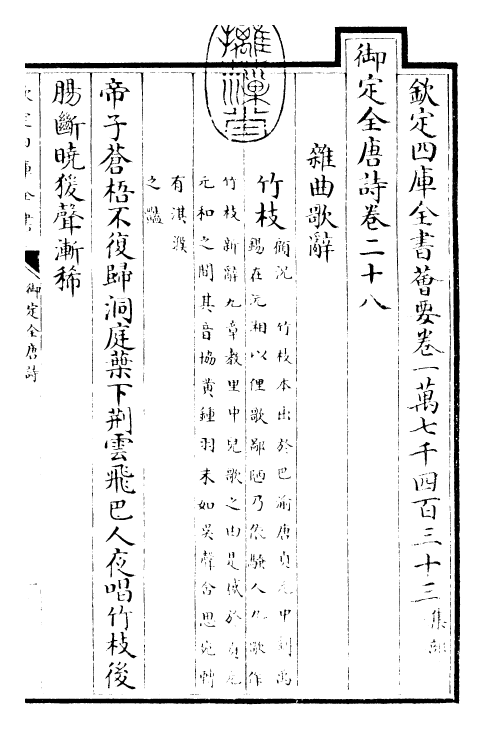 欽定四庫全書薈要卷一萬七千四百三十三 集部
御定全唐詩卷二十八
雜曲歌辭
竹枝 顧況 竹枝本出於巴渝唐貞元中劉禹
錫在沅湘以俚歌鄙陋乃依騷人九歌作
竹枝新辭九章教里中兒歌之由是盛於貞元
元和之間其音協黃鍾羽末如吳聲含思宛轉
有淇濮
之豔
帝子蒼梧不復歸洞庭葉下荆雲飛巴人夜唱竹枝後
腸斷曉猨聲漸稀
欽定四庫全書
御定全唐詩
一